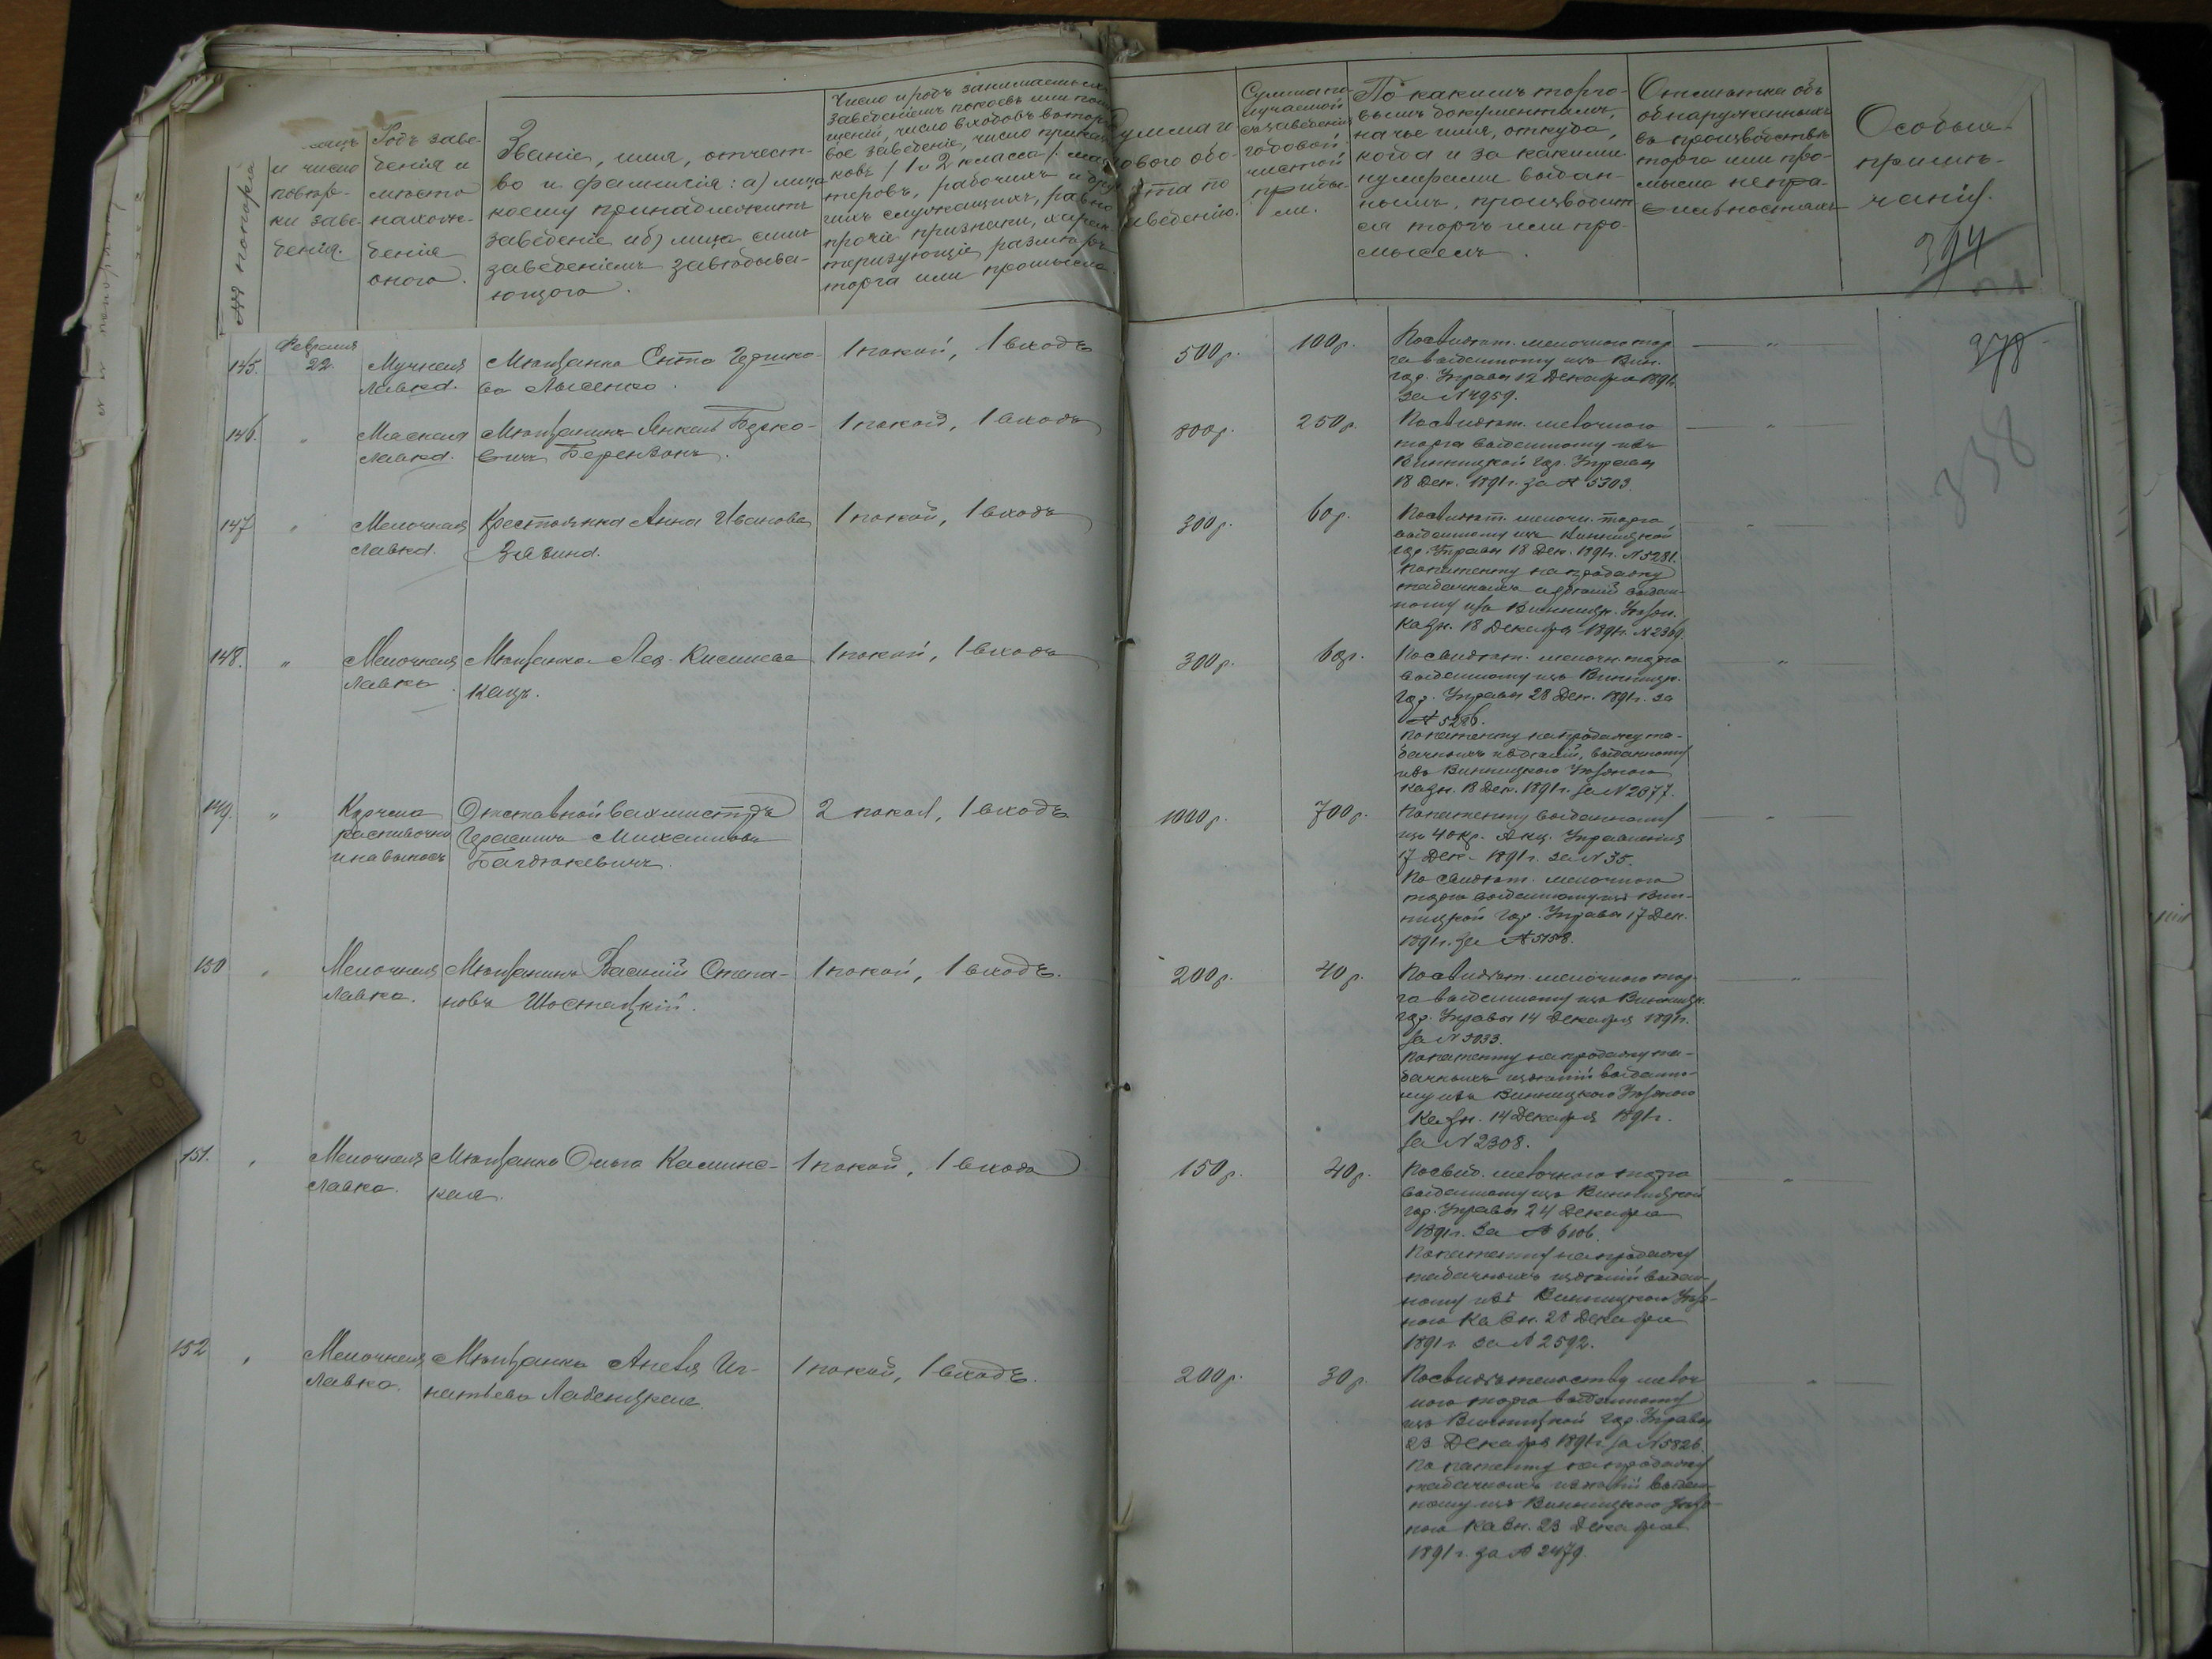 №№ по порядк
и число
повѣр-
ки заве-
денія.
Родъ заве-
денія и
мѣсто
нахож-
денія
онаго.
Званіе, имя, отчест-
во и фамилія: а) лица
коему принадлежитъ
заведеніе и б) лица симъ
заведеніемъ завѣдыва-
ющаго.
Число и родъ занимаемыхъ
заведеніемъ покоевъ или
щеній, число входовъ въ
вое заведеніе, число
ковъ / 1 и 2 класса /
теровъ, рабочихъ и
гихъ служащихъ, равно
прочіе признаки, харак-
теризующіе размѣръ
торга или промысла
умма г
ового обо-
та по
аведенію.
Сумма по-
лучаемой
заведенія
годовой
чистой
прибы-
ли.
По какимъ торго-
вымъ документамъ,
на чье имя, откуда,
когда и за какими
нумерами выдан-
нымъ, производит
ся торгъ или про-
мыселъ.
Отмѣтка объ
обнаруженныхъ
въ производствѣ
торга или про-
мысла непра-
вильностяхъ
Особыя
примѣ-
чанія.
394
378
338
145.
Февраля
22.
Мучная
лавка.
Мѣщанка Гершко-
ва Лысенко.
1 покой, 1 входъ
500 р.
100 р.
По свидѣт. мелочного тор
га выданному изъ Вин.
гор. Управы 12 Декабря 1891 г.
за № 4959.
146.
"
Мясная
лавка.
Мѣщанинъ Янкель Берко-
вичъ Берензонъ.
1 покой, 1 входъ
800 р.
250 р.
По свидѣт. мелочного
торга выданному изъ
Винницкой гор. Управы
18 Дек. 1891 г. за № 5303.
147
"
Мелочная
лавка.
Крестьянка Анна Иванова
1 покой, 1 входъ
300 р.
60 р.
По свидѣт. мелочн. торга,
выданному изъ Винницкой
гор. Управы 18 Дек. 1891 г. № 5281.
По патенту на продажу
табачныхъ издѣлій выдан-
ному изъ Винницк. Уѣздн.
Казн. 18 Декабря 1891 г. № 2369.
148.
"
Мелочная
лавка.
Мѣщанка Лея
Кацъ.
1 покой, 1 входъ
300 р.
60 р.
По свидѣт. мелочн. торга
выданному изъ Винницк.
гор. Управы 28 Дек. 1891 г. за
№ 5286.
По патенту на продажу та-
бачныхъ издѣлій, выданному
изъ Винницкаго Уѣзднаго
казн. 18 Дек. 1891 г. за № 2377.
149.
"
Корчма
распивочно
и на выносъ
Отставной вахмистръ
Герасимъ Михайловъ
Багдюкевичъ.
2 покоя, 1 входъ
1000 р.
700 р.
По патенту выданному
изъ 4 окр. Акц. Управленія
17 Дек. 1891 г. за № 35.
По свидѣт. мелочного
торга выданному изъ Вин-
ницкой гор. Управы 17 Дек.
1891 г. за № 5158.
150
"
Мелочная
лавка.
Мѣщанинъ Василій Степа-
новъ Шостацкій.
1 покой, 1 входъ.
200 р.
40 р.
По свидѣт. мелочного тор
га выданному изъ Винницк.
гор. Управы 14 Декабря 1891 г.
за № 5033.
По патенту на продажу та-
бачныхъ издѣлій выданно-
му изъ Винницкаго Уѣзднаго
Казн. 14 Декабря 1891 г.
за № 2308.
151.
"
Мелочная
лавка.
Мѣщанка Ольга Калинс-
кая.
1 покой, 1 входъ
150 р.
40 р.
По свид. мелочного торга
выданному изъ Винницкой
гор. Управы 24 Декабря
1891 г. за № 6106.
По патенту на продажу
табачныхъ издѣлій выдан-
ному изъ Винницкаго Уѣзд-
наго Казн. 28 Декабря
1891 г. за № 2592.
152
"
Мелочная
лавка.
Мѣщанка Анеля Иг-
натьева
1 покой, 1 входъ.
200 р.
30 р.
По свидѣтельству мелоч
ного торга выданному
изъ Винницкой гор. Управы
23 Декабря 1891 г. за № 5826.
По патенту на продажу
табачныхъ издѣлій выдан-
ному изъ Винницкаго Уѣзд-
наго Казн. 23 Декабря
1891 г. за № 2479.